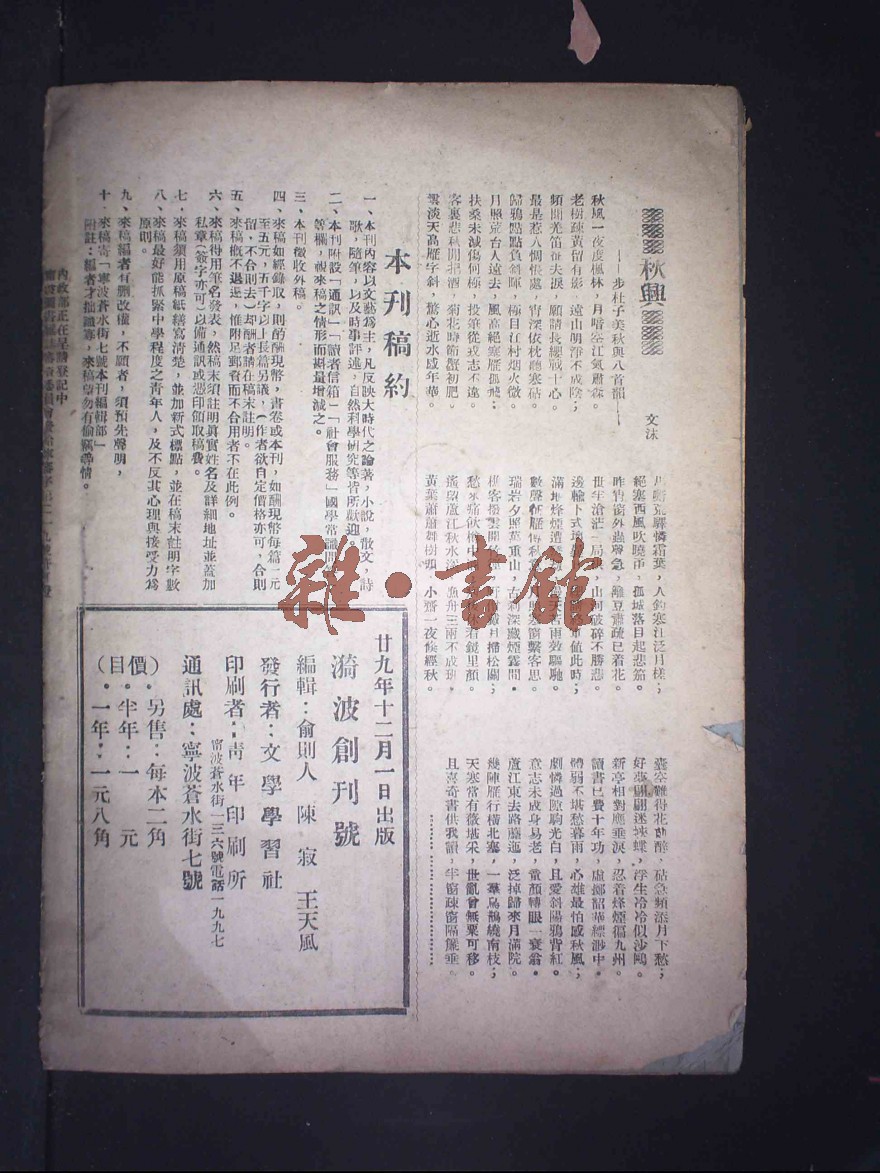 秋興
——步杜子美秋興八首韻——
文沫
秋風一夜度楓林，月暗空江氣肅森。
老樹疎黃留有影，遠山明淨不成陰；
頻聞羌笛征夫淚，願請長纓戰士心。
最是惹人惆悵處，宵深依枕聽寒砧。
歸鴉點點負斜暉，極目江村烟火微。
月照荒台人遠去，風高絕塞雁孤飛；
扶桑未滅傷何極，投筆從戎志不違。
客裏悲秋聞把酒，菊花時節蟹初肥。
雲淡天高雁字斜，驚心逝水感年華。
荒驛憐霜葉，人釣寒江泛月槎；
絕塞西風吹曉角，孤城落日起悲笳。
昨宵窗外蟲聲急，籬豆蕭疏已着花。
世年滄茫一局棋，山河破碎不勝悲。
值此時；
滿地烽煙
數聲征雁
客思。
瑞岩夕照萬重山，古刹深藏烟靄間。
月掃松關；
愁來
若鏡里顏。
遙望廬江秋水
漁舟三兩不成班，
黃葉蕭蕭舞樹頭，小齋一夜候經秋。
囊空難得花前醉，砧急頻添月下愁；
好夢翩翩迷蛺蝶，浮生冷冷似沙鷗。
新亭相對應垂淚，忍着烽煙徧九州。
讀書已費十年功，虛擲韶華縹渺中。
體弱不堪愁暮雨，心雄最怕感秋風；
劇憐過隙駒光白，且愛斜陽鴉背紅。
意志未成身易老，童顏轉眼一衰翁。
廬江東去路逶迤，泛掉歸來月滿院。
幾陣雁行橫北塞，一羣烏鵲繞南枝；
天寒常有薇堪采，世亂曾無粟可移。
且喜奇書供我讀，半窗疎窗隔簾垂。
本刊稿約
一、本刊內容以文藝爲主，凡反映大時代之論著，小說，散文，詩
歌，隨筆，以及時事評述，自然科學研究等皆所歡迎。
二、本刊附設「通訊」「讀者信箱」「社會服務」國學常識問
等欄，視來稿之情形而斟量增減之。
三、本刊徵收外稿。
四、來稿如經錄取，則酌酬現幣，書卷或本刊，如酬現幣每篇一元
至五元，五千字以上長篇另議，（作者欲自定價格亦可，合則
留，不合則去）却酬者請在稿末註明。
五、來稿概不退還，惟附足郵資而不合用者不在此例。
六、來稿得用筆名發表，然稿末須註明眞實姓名及詳細地址並蓋加
私章（簽字亦可）以備通訊或憑印領取稿費。
七、來稿須用原稿紙繕寫清楚，並加新式標點，並在稿末註明字數
八、來稿最好能抓緊中學程度之靑年人，及不反其心理與接受力爲
原則。
九、來稿編者有刪改權，不願者，須預先聲明，
十、來稿寄「寧波蒼水街七號本刊編輯部」
附註：編者才拙識寡，來稿希勿有偷竊等情。
內政部正在呈請登記中
廿九年十二月一日出版
漪波創刊號
編輯：俞則人 陳寂 王天風
發行者：文學學習社
印刷者：靑年印刷所
甯波蒼水街一三六號電話一九九七
通訊處：寧波蒼水街七號
價目
．另售：每本二角
．半年：一 元
．一年：一元八角
雜·書館